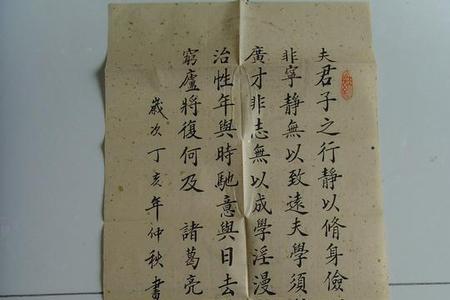 夫君子之行靜以脩身儉
非寧靜無以致遠夫學須
廣才非志無以成學淫漫
治性年與時馳意與日去
窮廬將復何及 諸葛亮
歲次丁亥年仲秋書